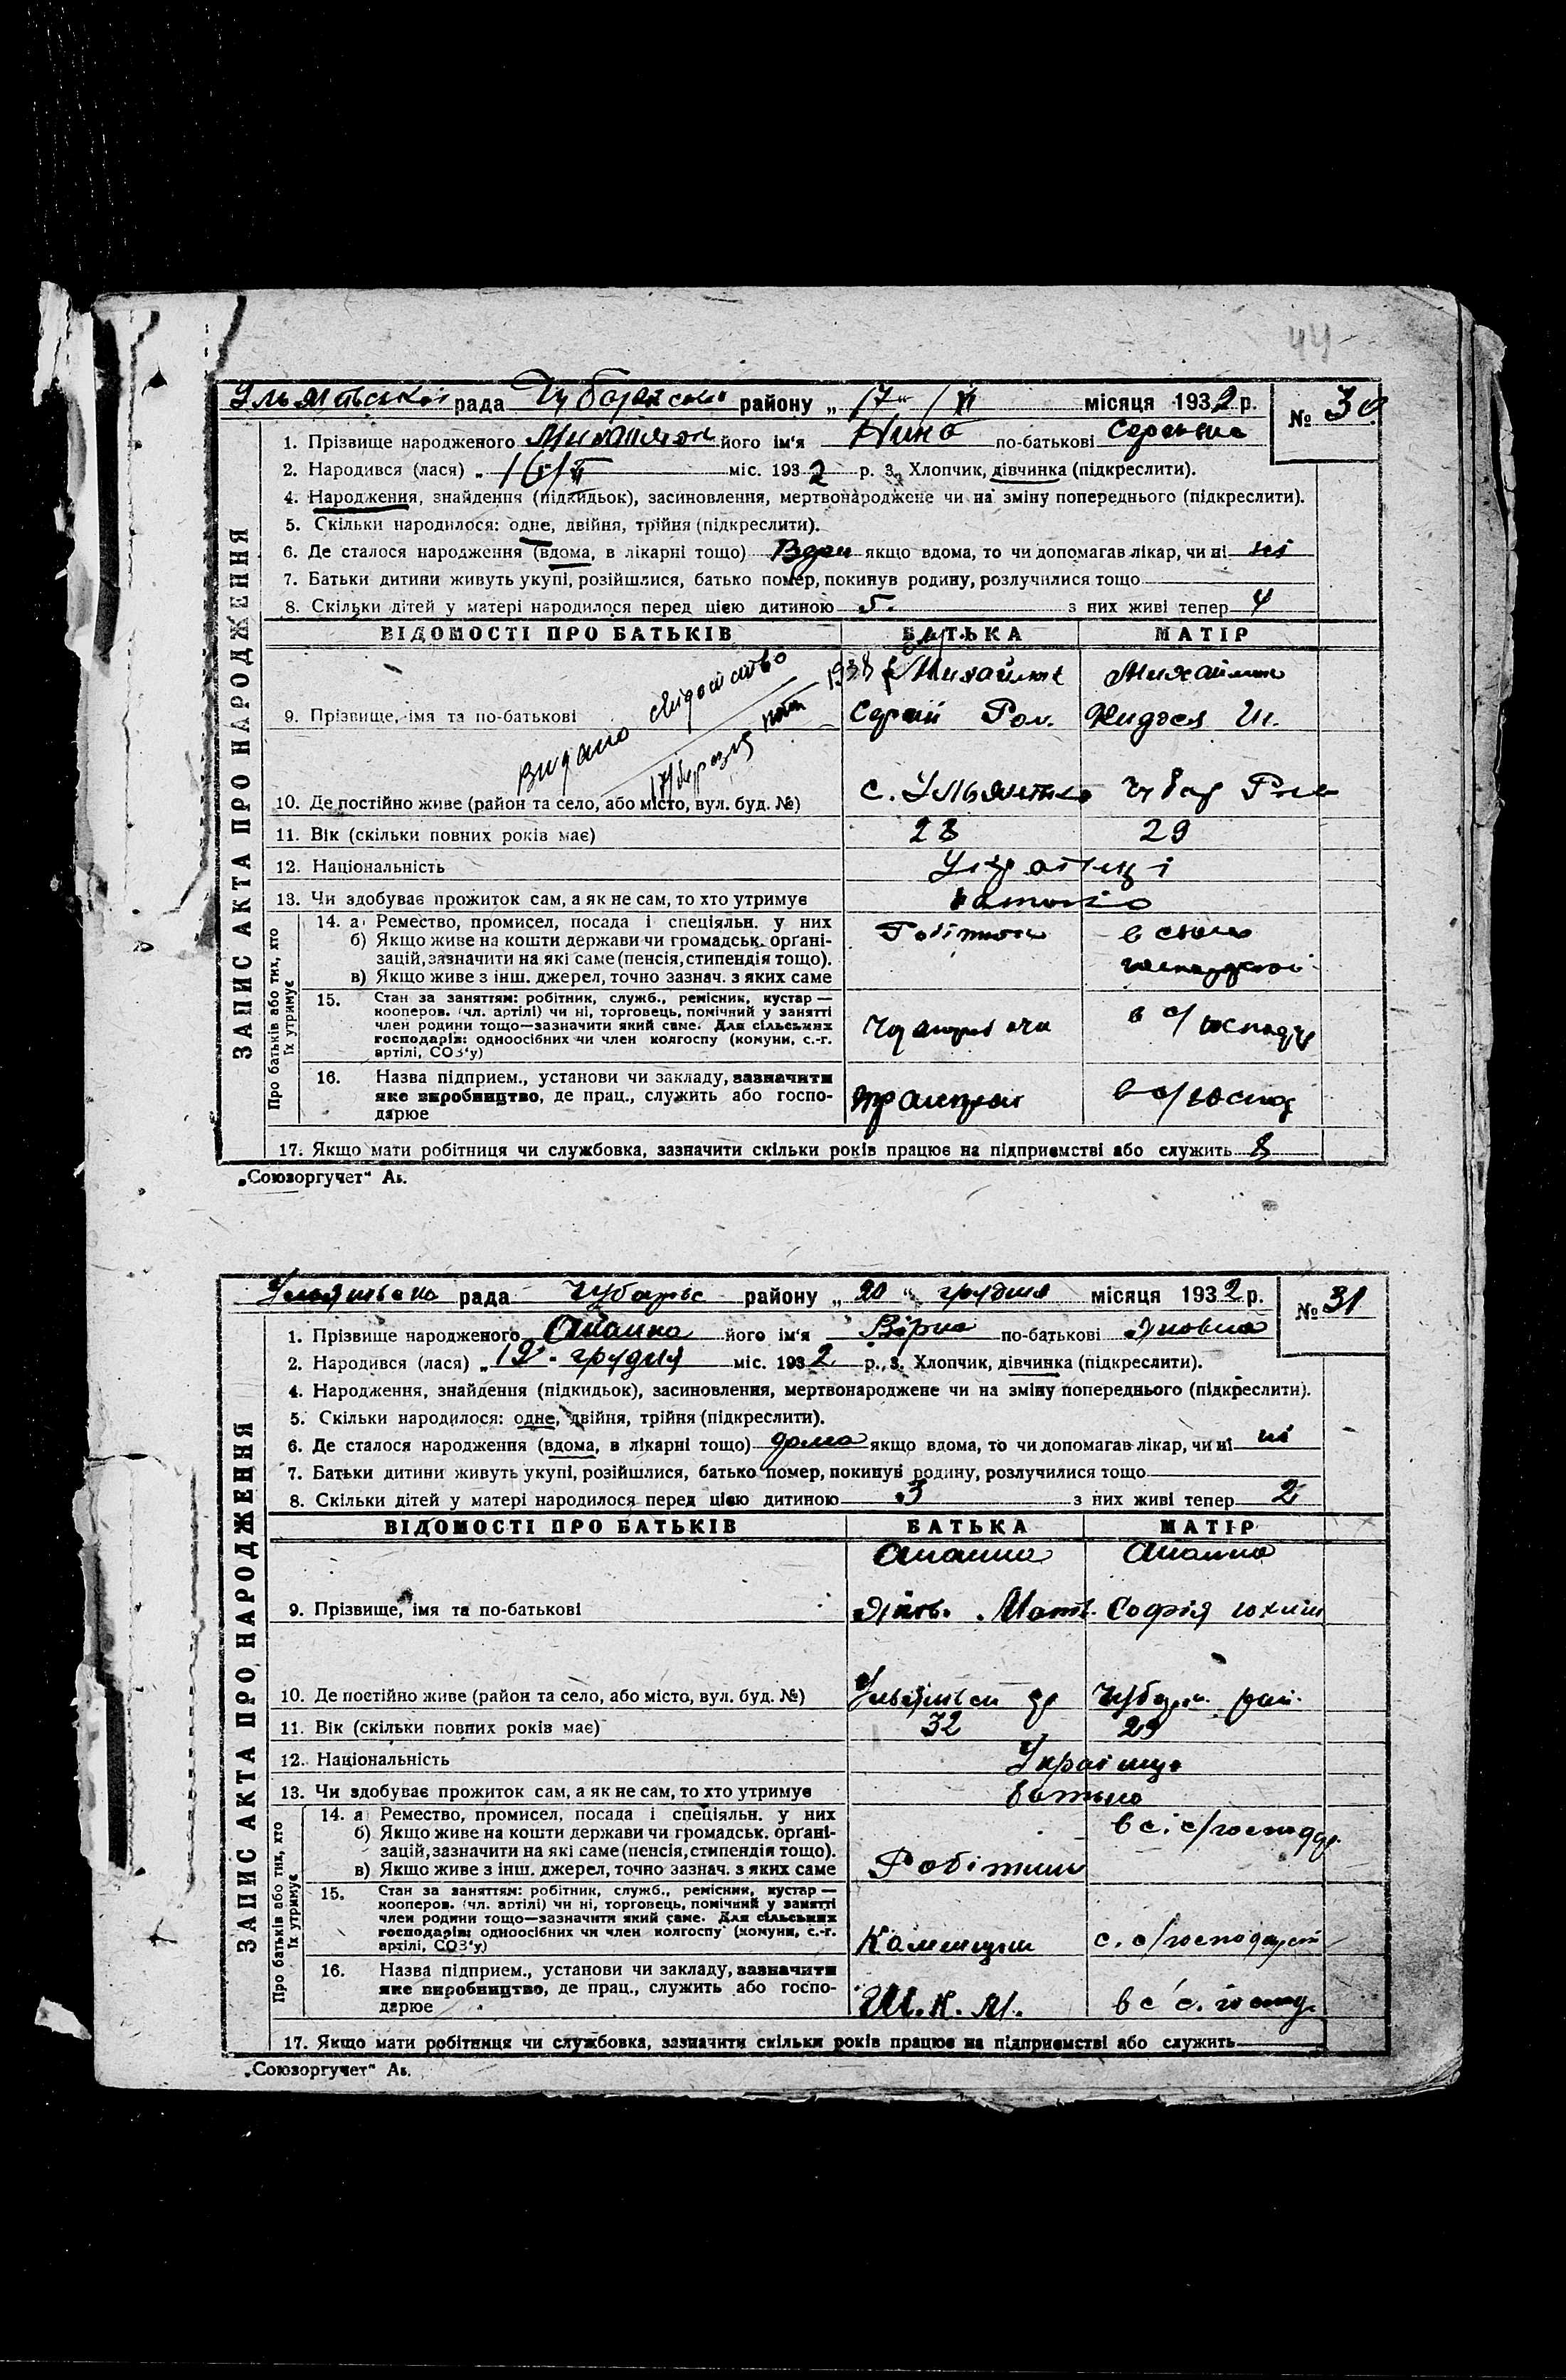 44
Ульянівської рада Чубарівсько району „ 17 “ / XI місяця 1932 р. № 30
ЗАПИС АКТА ПРО НАРОДЖЕННЯ
1. Прізвище народженого Михайлюк його ім'я Нина по-батькові
2. Народився (лася) „ міс. 1932 р. 3. Хлопчик, дівчинка (підкреслити).
4. Народження, знайдення (підкидьок), засиновлення, мертвонароджене чи на зміну попереднього (підкреслити).
5. Скільки народилося: одне, двійня, трійня (підкреслити).
6. Де сталося народження (вдома, в лікарні тощо) якщо вдома, то чи допомагав лікар, чи ні ні
7. Батьки дитини живуть укупі, розійшлися, батько помер, покинув родину, розлучилися тощо
8. Скільки дітей у матері народилося перед цією дитиною 5. з них живі тепер 4
ВІДОМОСТІ ПРО БАТЬКІВ БАТЬКА МАТІР
Видано свідоцтво
17 березня 1938
Михайлюк Михайлюк
9. Прізвище, імя та по-батькові Сергій Ром.
10. Де постійно живе (район та село, або місто, вул. буд. №) с. Чубар
11. Вік (скільки повних років має) 28 29
12. Національність Українці
13. Чи здобуває прожиток сам, а як не сам, то хто утримує батько
Про батьків або тих, хто їх утримує
14. а) Ремество, промисел, посада і спеціяльн. у них Робітник в сільс
б) Якщо живе на кошти держави чи громадськ. органі-
зацій, зазначити на які саме (пенсія, стипендія тощо).
в) Якщо живе з інш. джерел, точно зазнач. з яких саме
15. Стан за заняттям: робітник, служб., ремісник, кустар —
кооперов. (чл. артілі) чи ні, торговець, помічний у занятті
член родини тощо—зазначити який саме. Для сільських
господарів: одноосібних чи член колгоспу (комуни, с.-г.
артілі, СОЗ'у) в с/господ
16. Назва підприєм., установи чи закладу, зазначити
яке виробництво, де прац., служить або госпо-
дарює в с/госпд
17. Якщо мати робітниця чи службовка, зазначити скільки років працює на підприємстві або служить 8
„Союзоргучет“ Аь.
рада Чубарівс району „ 20 “ грудня місяця 1932 р. № 31
ЗАПИС АКТА ПРО НАРОДЖЕННЯ
1. Прізвище народженого його ім'я Віра по-батькові Яковна
2. Народився (лася) „ 19 - грудня міс. 1932 р. 3. Хлопчик, дівчинка (підкреслити).
4. Народження, знайдення (підкидьок), засиновлення, мертвонароджене чи на зміну попереднього (підкреслити).
5. Скільки народилося: одне, двійня, трійня (підкреслити).
6. Де сталося народження (вдома, в лікарні тощо) дома якщо вдома, то чи допомагав лікар, чи ні ні
7. Батьки дитини живуть укупі, розійшлися, батько помер, покинув родину, розлучилися тощо
8. Скільки дітей у матері народилося перед цією дитиною 3 з них живі тепер 2
ВІДОМОСТІ ПРО БАТЬКІВ БАТЬКА МАТІР
9. Прізвище, імя та по-батькові Яків. Матв. Софія юхим
10. Де постійно живе (район та село, або місто, вул. буд. №) Чубар. рай.
11. Вік (скільки повних років має) 32 29
12. Національність Українці
13. Чи здобуває прожиток сам, а як не сам, то хто утримує батько
Про батьків або тих, хто їх утримує
14. а) Ремество, промисел, посада і спеціяльн. у них
б) Якщо живе на кошти держави чи громадськ. органі-
зацій, зазначити на які саме (пенсія, стипендія тощо).
в) Якщо живе з інш. джерел, точно зазнач. з яких саме Робітник
15. Стан за заняттям: робітник, служб., ремісник, кустар —
кооперов. (чл. артілі) чи ні, торговець, помічний у занятті
член родини тощо—зазначити який саме. Для сільських
господарів: одноосібних чи член колгоспу (комуни, с.-г.
артілі, СОЗ'у) Каменщик с. с/господарст
16. Назва підприєм., установи чи закладу, зазначити
яке виробництво, де прац., служить або госпо-
дарює Ш. К. М. в с/с. госпд.
17. Якщо мати робітниця чи службовка, зазначити скільки років працює на підприємстві або служить
„Союзоргучет“ Аь.